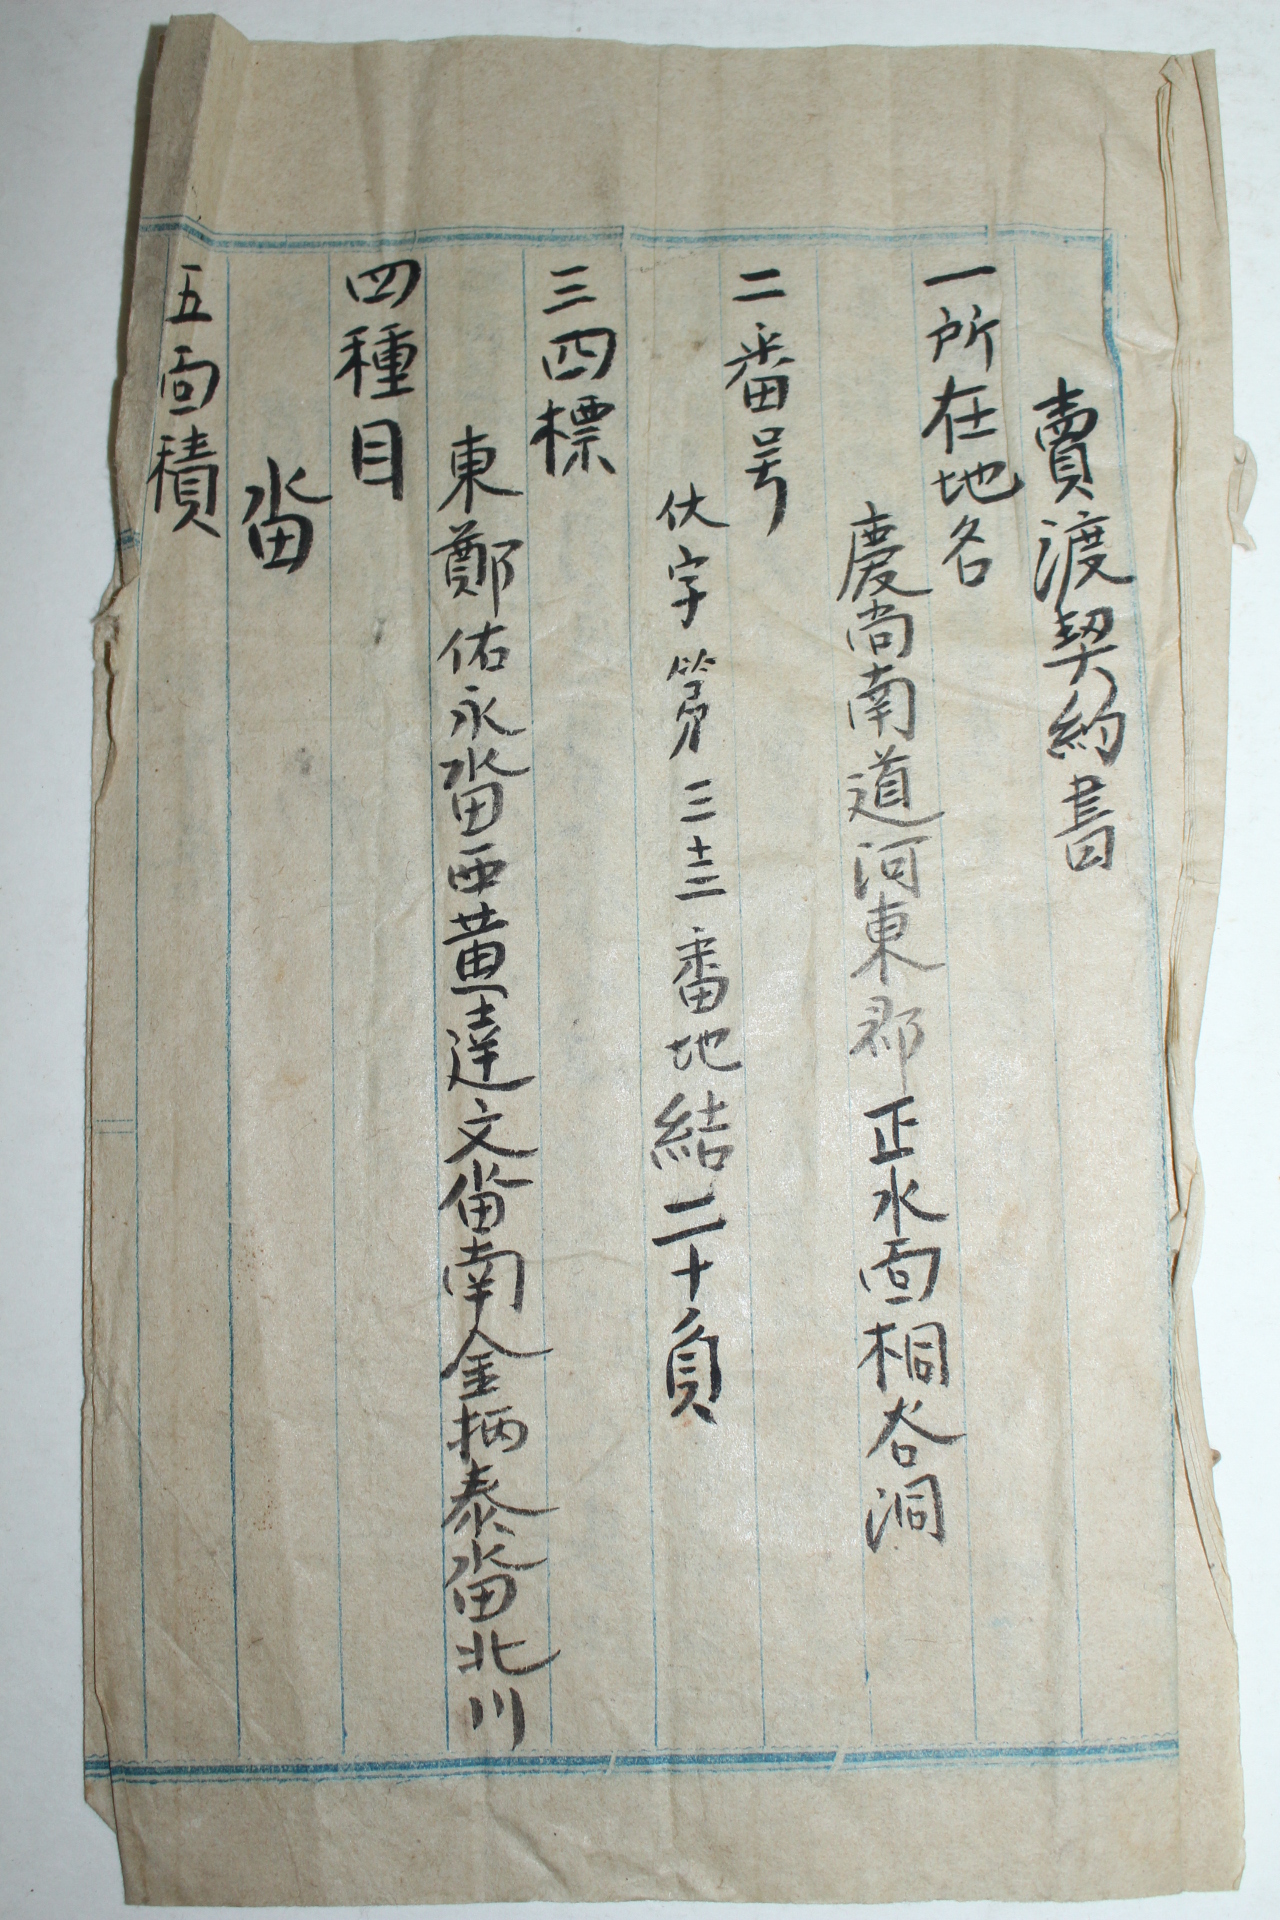 賣渡契約書
一所在地名
慶尙南道河東郡正水面桐谷洞
二番号
伏字第三十三番地結二十負
三四標
東鄭佑永畓西黃達文畓南金柄泰畓北川
四種目
畓
五面積